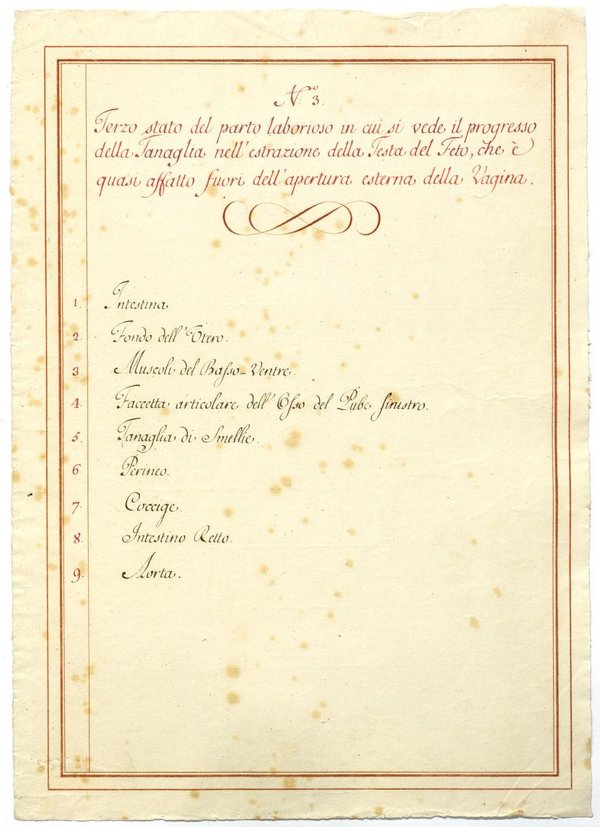 N.º 3.
Terzo stato del parto laborioso in cui si vede il progresso
della Tanaglia nell'estrazione della Testa del Feto, che è
quasi affatto fuori dell'apertura esterna della Vagina.
1. Intestina
2. Fondo dell'Utero.
3 Muscoli del Basso-Ventre.
4. Faccetta articolare dell'Osso del Pube sinistro.
5. Tanaglia di Smellie.
6 Perineo.
7. Coccige.
8. Intestino Retto.
9. Aorta.